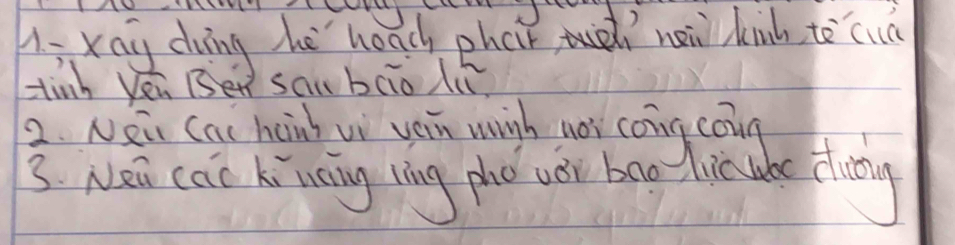 1.- Xây dựng kế hoạch phát triển nền kinh tế của
tỉnh Yên Bái sau bão lũ.
2. Nêu các hành vi văn minh nơi công cộng
3. Nêu các kĩ năng ứng phó với bạo lực học đường